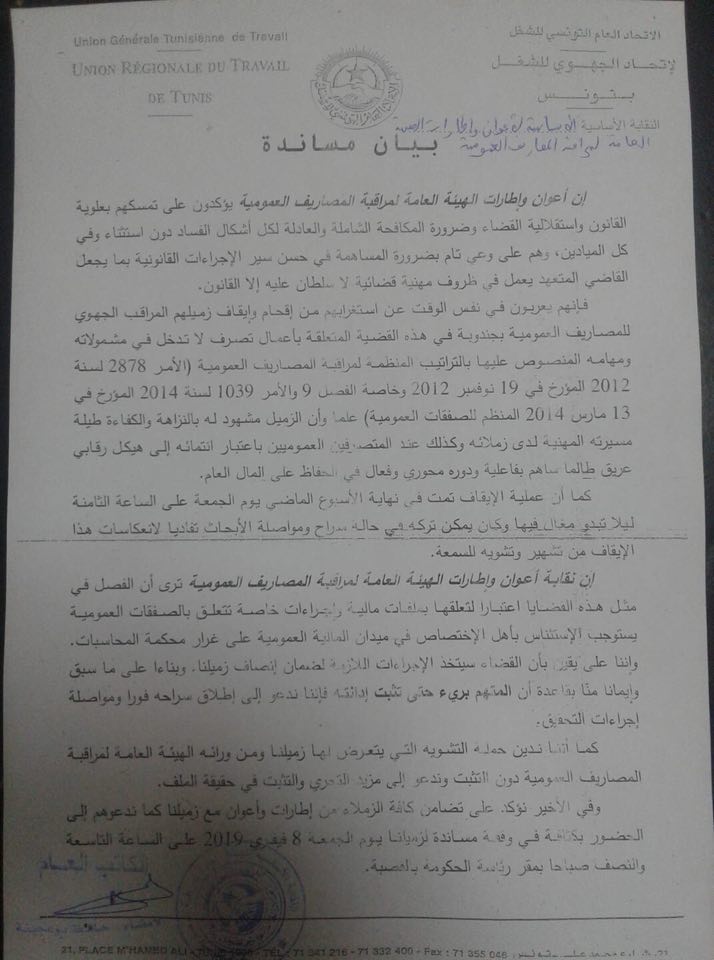 Union Générale Tunisienne de Travail
UNION RÉGIONALE DU TRAVAIL
DE TUNIS
الاتحاد العام التونسي للشغل
لإتحاد الجهوي للشغل
بتونس
النقابة الأساسية لأعوان وإطارات الهيئة
العامة لمراقبة المصاريف العمومية
بيان مساندة
إن أعوان وإطارات الهيئة العامة لمراقبة المصاريف العمومية يؤكدون على تمسكهم بعلوية
القانون واستقلالية القضاء وضرورة المكافحة الشاملة والعادلة لكل أشكال الفساد دون استثناء وفي
كل الميادين، وهم على وعي تام بضرورة المساهمة في حسن سير الإجراءات القانونية بما يجعل
القاضي المتعهد يعمل في ظروف مهنية قضائية لا سلطان عليه إلا القانون.
فإنهم يعربون في نفس الوقت عن استغرابهم من إقحام وإيقاف زميلهم المراقب الجهوي
للمصاريف العمومية بجندوبة في هذه القضية المتعلقة بأعمال تصرف لا تدخل في مشمولاته
ومهامه المنصوص عليها بالتراتيب المنظمة لمراقبة المصاريف العمومية (الأمر 2878 لسنة
2012 المؤرخ في 19 نوفمبر 2012 وخاصة الفصل 9 والأمر 1039 لسنة 2014 المؤرخ في
13 مارس 2014 المنظم للصفقات العمومية) علما وأن الزميل مشهود له بالنزاهة والكفاءة طيلة
مسيرته المهنية لدى زملائه وكذلك عند المتصرفين العموميين باعتبار انتمائه إلى هيكل رقابي
عريق طالما ساهم بفاعلية ودوره محوري وفعال في الحفاظ على المال العام.
كما أن عملية الإيقاف تمت في نهاية الأسبوع الماضي يوم الجمعة على الساعة الثامنة
ليلا تبدو مغال فيها وكان يمكن تركه في حالة سراح ومواصلة الأبحاث تفاديا لانعكاسات هذا
الإيقاف من تشهير وتشويه للسمعة.
إن نقابة أعوان وإطارات الهيئة العامة لمراقبة المصاريف العمومية ترى أن الفصل في
مثل هذه القضايا اعتبارا لتعلقها بملفات مالية وإجراءات خاصة تتعلق بالصفقات العمومية
يستوجب الإستئناس بأهل الإختصاص في ميدان المالية العمومية على غرار محكمة المحاسبات.
وإننا على يقين بأن القضاء سيتخذ الإجراءات اللازمة لضمان إنصاف زميلنا. وبناءا على ما سبق
وإيمانا منّا بقاعدة أن المتهم بريء حتى تثبت إدانته فإننا ندعو إلى إطلاق سراحه فورا ومواصلة
إجراءات التحقيق.
كما أننا ندين حملة التشويه التي يتعرض لها زميلنا ومن ورائه الهيئة العامة لمراقبة
المصاريف العمومية دون التثبت وندعو إلى مزيد التحري والتثبت في حقيقة الملف.
وفي الأخير نؤكد على تضامن كافة الزملاء من إطارات وأعوان مع زميلنا كما ندعوهم إلى
الحضور بكثافة في وقفة مساندة لزميلنا يوم الجمعة 8 فيفري 2019 على الساعة التاسعة
والنصف صباحا بمقر رئاسة الحكومة بالقصبة.
الكاتب العام
21, PLACE M'HAMED ALI - TUNIS - TEL : 71 341 216 - 71 332 400 - Fax : 71 355 046